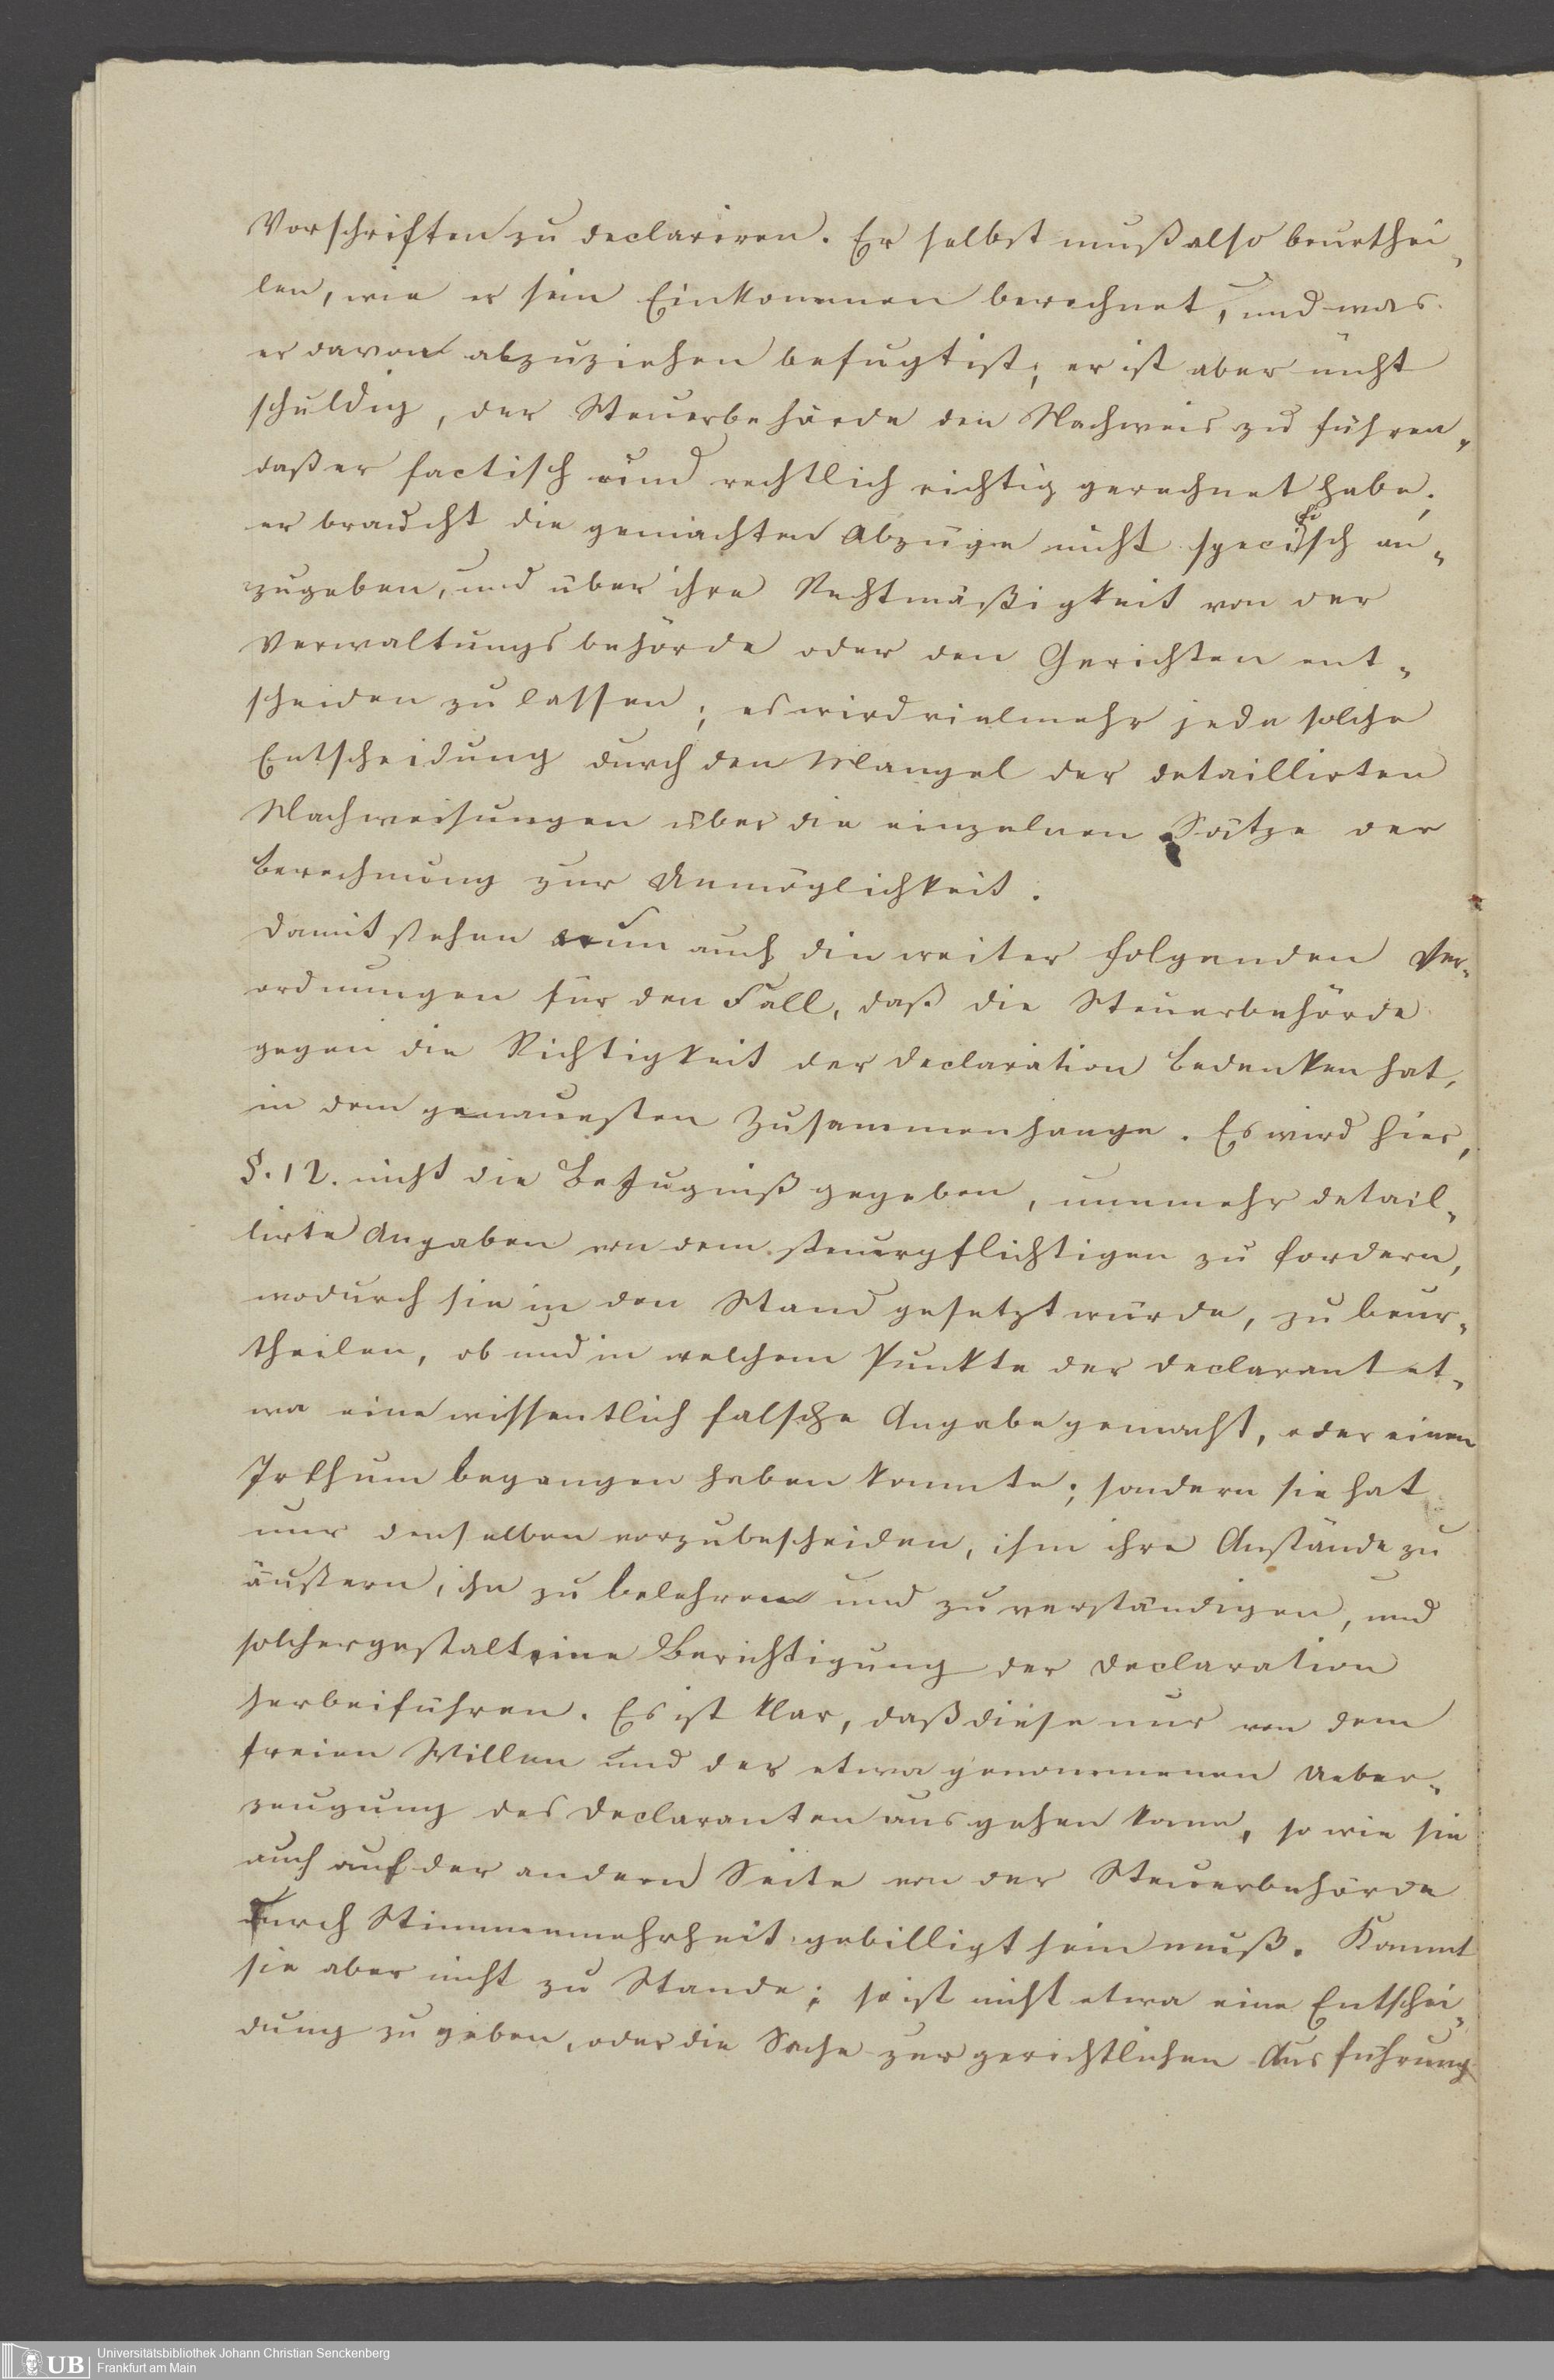 Vorschriften zu declariren. Er selbst muß also beurthei-
len, wie er sein Einkommen berechnet, und was
er davon abzuziehen befugt ist; er ist aber nicht
schuldig, der Steuerbehörde den Nachweis zu führen,
daß er factisch und rechtlich richtig gerechnet habe;
er braucht die gemachten Abzüge nicht specifisch an-
zugeben, und über ihre Rechtmäßigkeit von der
Verwaltungsbehörde oder den Gerichten ent-
scheiden zu lassen; es wird vielmehr jede solche
Entscheidung durch den Mangel der detaillirten
Nachweisungen über die einzelnen Sätze der
Berechnung zur Unmöglichkeit.
Damit stehen nun auch die weiter folgenden Ver-
ordnungen für den Fall, daß die Steuerbehörde
gegen die Richtigkeit der Declaration Bedenken hat,
in dem genauesten Zusammenhange. Es wird hier,
§. 12. nicht die Befugniß gegeben, nunmehr detail-
lirte Angaben von dem Steuerpflichtigen zu fordern,
wodurch sie in den Stand gesetzt würde, zu beur-
theilen, ob und in welchem Punkte der Declarant et-
wa eine wissentlich falsche Angabe gemacht, oder einen
Irthum begangen haben konnte; sondern sie hat
nur denselben vorzubescheiden, ihm ihre Anstände zu
äußern, ihn zu belehren und zu verständigen, und
solchergestalt eine Berichtigung der Declaration
herbeiführen. Es ist klar, daß diese nur von dem
freien Willen und der etwa gewonnenen Ueber-
zeugung des Declaranten ausgehen kann, so wie sie
auch auf der andern Seite von der Steuerbehörde
durch Stimmenmehrheit gebilligt sein muß. Kommt
sie aber nicht zu Stande; so ist nicht etwa eine Entschei-
dung zu geben, oder die Sache zur gerichtlichen Ausführung
UB
Universitätsbibliothek Johann Christian Senckenberg
Frankfurt am Main